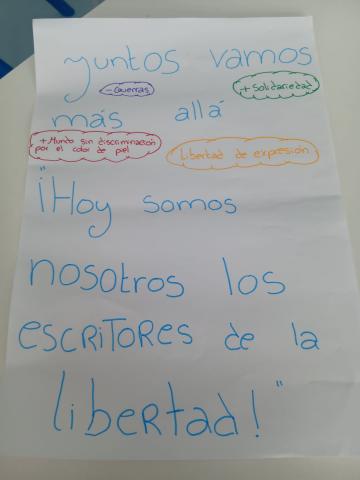 yuntos vamos
- Guerras
+ Solidariedad
más allá
+ Mundo sin discriminación
por el color de piel
Libertad de expresión
"¡Hoy somos
nosotros los
ESCRITORES de la
libertad!"